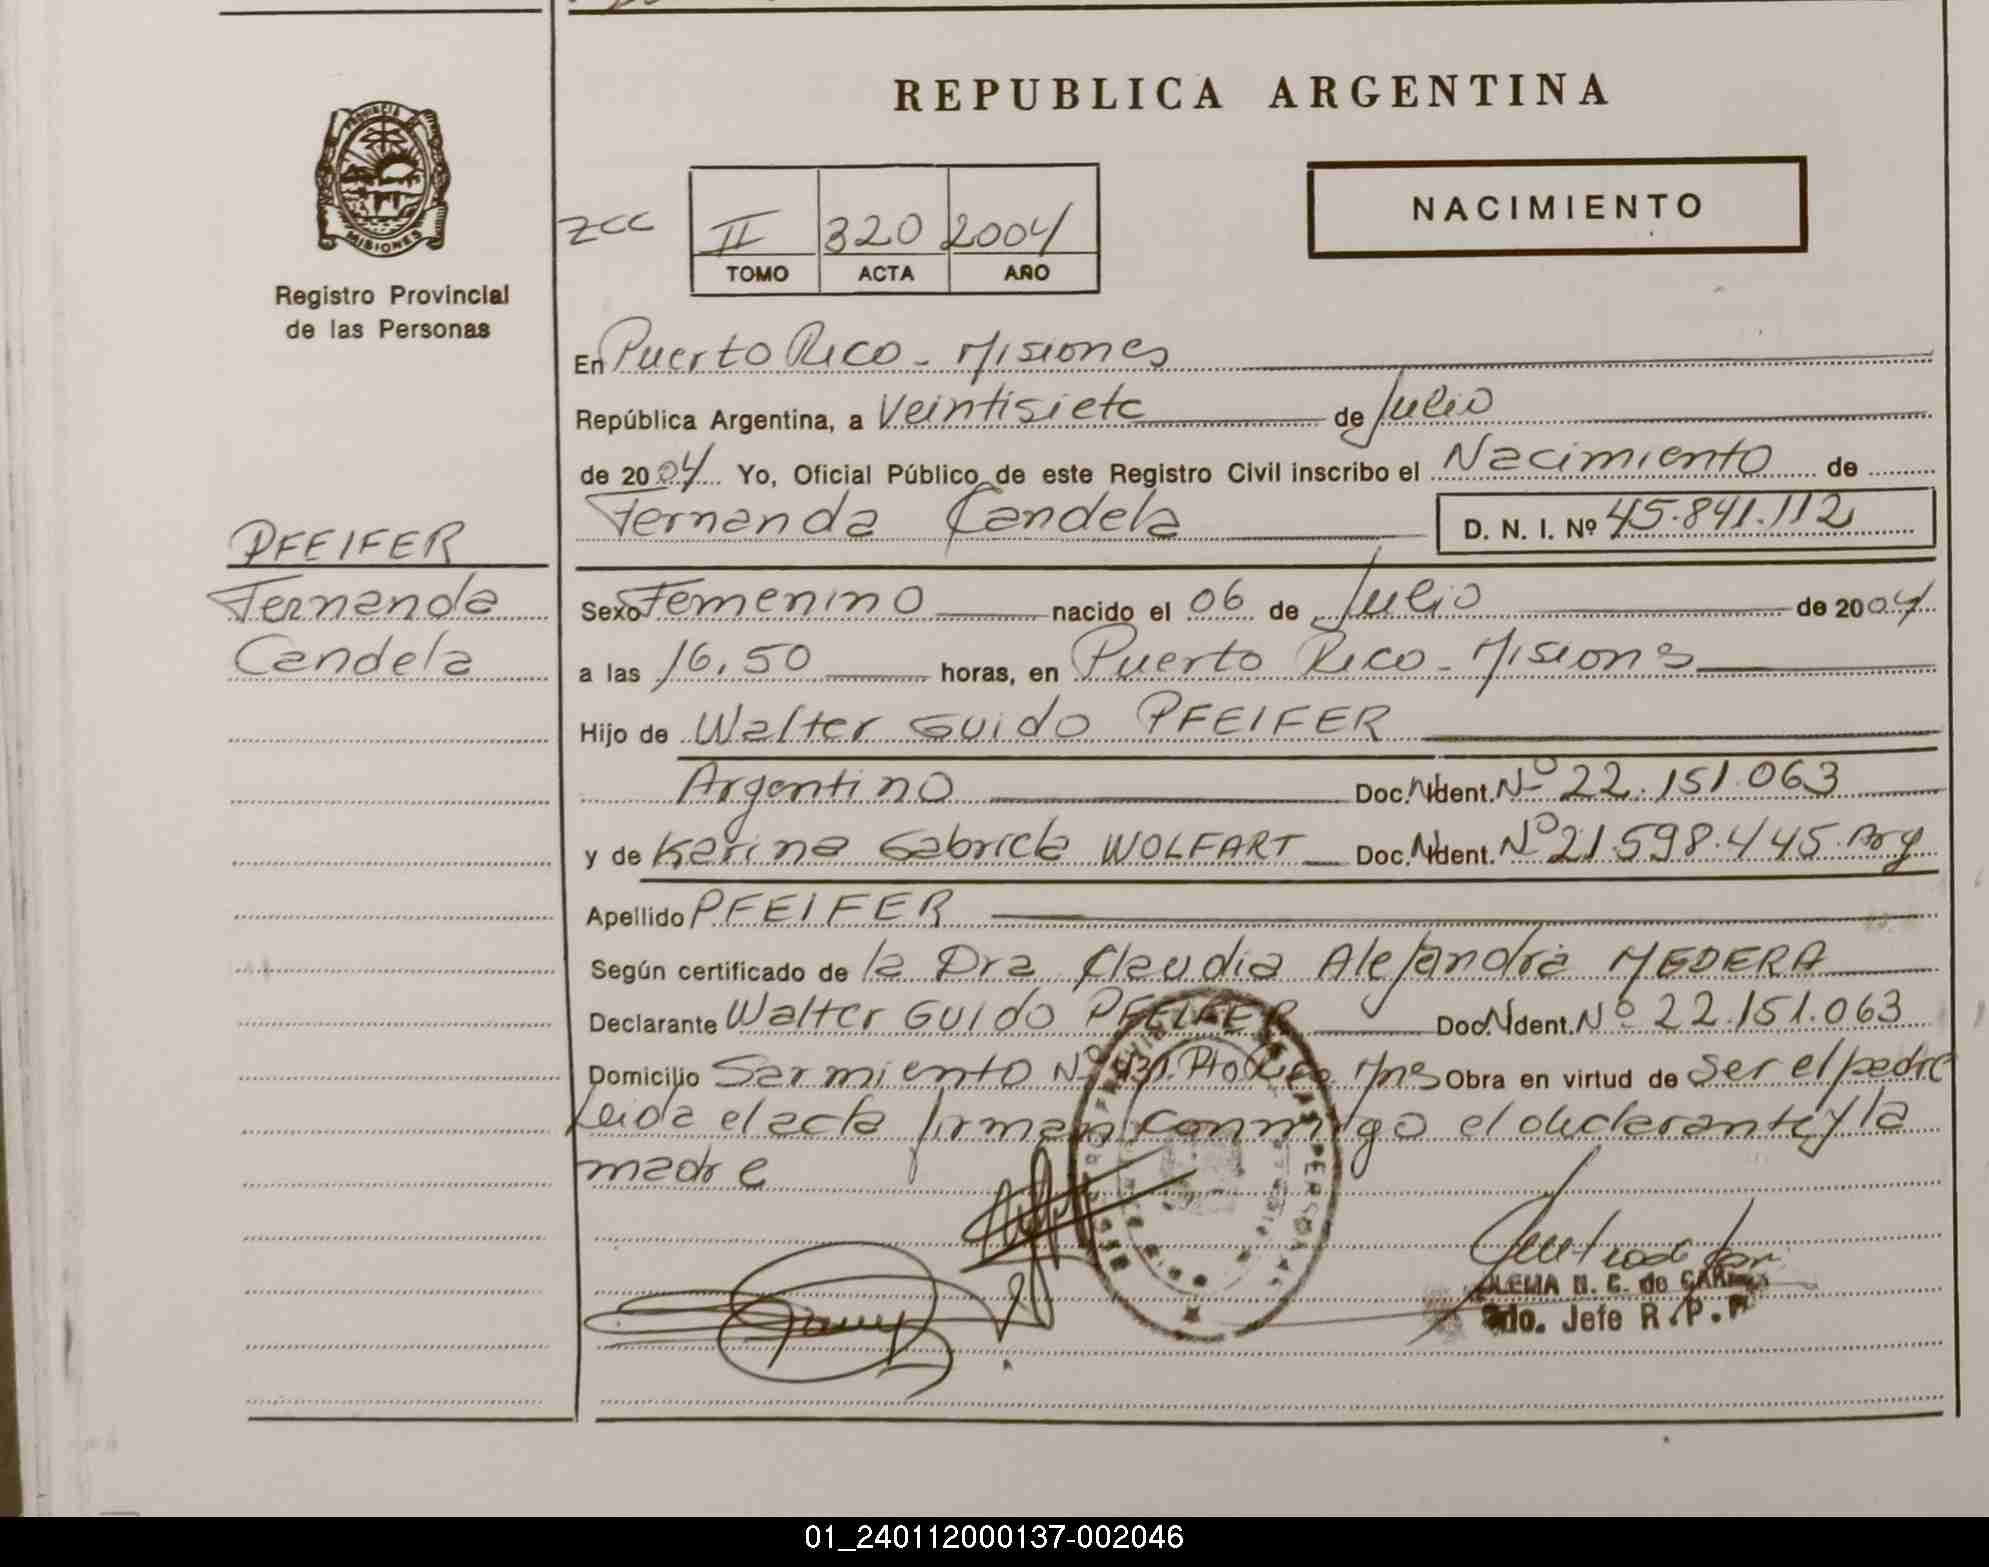 REPUBLICA ARGENTINA
PROVINCIA DE
MISIONES
Registro Provincial
de las Personas
zcc
II 320 2004
TOMO ACTA AÑO
NACIMIENTO
En Puerto Rico - Misiones
República Argentina, a Veintisiete de Julio
de 2004 Yo, Oficial Público de este Registro Civil inscribo el Nacimiento de
Fernanda Candela D. N. I. Nº 45.841.112
PFEIFER
Fernanda
Candela
Sexo Femenino nacido el 06 de Julio de 2004
a las 16,50 horas, en Puerto Rico - Misiones
Hijo de Walter Guido PFEIFER
Argentino Doc. Ident. Nº 22.151.063
y de Karina Gabriela WOLFART Doc. Ident. Nº 21.598.445. Arg
Apellido PFEIFER
Según certificado de la Dra Claudia Alejandra MEDERA
Declarante Walter Guido PFEIFER Doc. Ident. Nº 22.151.063
Domicilio Sarmiento Nº Pto Rico Mnes Obra en virtud de ser el padre
Leida el acta firman conmigo el declarante y la
madre
N. C. de
Jefe R.P.P
01_240112000137-002046